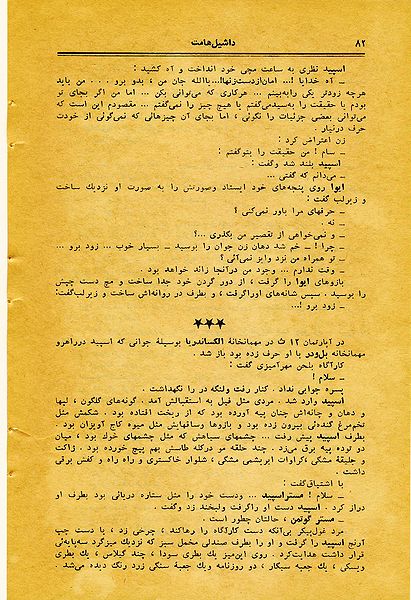 ۸۲ داشیل‌هامت
اسپید نظری به ساعت مچی خود انداخت و آه کشید :
ـ آه خدایا !... امان‌ازدست‌زنها!...باالله جان من ، بدو برو . . . من باید
هرچه زودتر یکی رابه‌بینم ... هرکاری که می‌توانی بکن ... اما من اگر بجای تو
بودم یا حقیقت را به‌سیدمی‌گفتم یا هیچ چیز را نمی‌گفتم ... مقصودم این است که
می‌توانی بعضی جزئیات را نگوئی ، اما بجای آن چیزهائی که نمی‌گوئی از خودت
حرف درنیار .
زن اعتراض کرد :
ـ سام ! من حقیقت را بتوگفتم :
اسپید بلند شد وگفت :
ـ می‌دانم که گفتی ...
ایوا روی پنجه‌های خود ایستاد وصورتش را به صورت او نزدیك ساخت
و زیرلب گفت :
ـ حرفهای مرا باور نمی‌کنی ؟
ـ نه .
ـ و نمی‌خواهی از تقصیر من بگذری ...؟
ـ چرا ! ـ خم شد دهان زن جوان را بوسید ـ بسیار خوب ... زود برو ...
ـ تو همراه من نزد وایز نمی‌آئی ؟
ـ وقت ندارم ... وجود من درآنجا زائد خواهد بود .
بازوهای ایوا را گرفت ، از دور گردن خود جدا ساخت و مچ دست چپش
را بوسید . سپس شانه‌های اوراگرفت ، و بطرف در روانه‌اش ساخت و زیرلب‌گفت:
ـ زود برو !...
★★★
در آپارتمان ۱۲ ث در مهمانخانهٔ الکساندریا بوسیلهٔ جوانی که اسپید درراهرو
مهمانخانه بل‌ودر با او حرف زده بود باز شد .
کارآگاه بلحن مهرآمیزی گفت :
ـ سلام !
پسره جوابی نداد . کنار رفت ولنگه در را نگهداشت .
اسپید وارد شد . مردی مثل فیل به استقبالش آمد . گونه‌های گلگون ، لپها
و دهان و چانه‌اش چنان پیه آورده بود که از ریخت افتاده بود . شکمش مثل
تخم‌مرغ گنده‌ئی بیرون زده بود و بازوها وساقهایش مثل میوه کاج آویزان بود .
بطرف اسپید پیش رفت ... چشمهای سیاهش که مثل چشمهای خوك بود ، میان
دو توده پیه برق می‌زد . چند حلقه مو درکله طاسش بهم پیچ خورده بود . ژاکت
و جلیقهٔ مشکی،کراوات ابریشمی مشکی ، شلوار خاکستری و راه راه و کفش برقی
داشت .
با اشتیاق‌گفت:
ـ سلام ! مستراسپید ... ودست خود را مثل ستاره دریائی بود بطرف او
دراز کرد . اسپید دست او راگرفت ولبخند زد وگفت :
ـ مستر گوتمن ، حالتان چطور است .
مرد غول‌پیکر بی‌آنکه دست کارآگاه را رهاکند ، چرخی زد ، با دست چپ
آرنج اسپید را گرفت و او را بطرف صندلی مخمل سبز که نزدیك میزگرد سه‌پایه‌ئی
قرار داشت هدایت‌کرد . روی این‌میز یك بطری سودا ، چند گیلاس ، یك بطری
ویسکی ، یك جعبه سیگار ، دو روزنامه ویك جعبهٔ سنگی زرد رنگ دیده می‌شد .